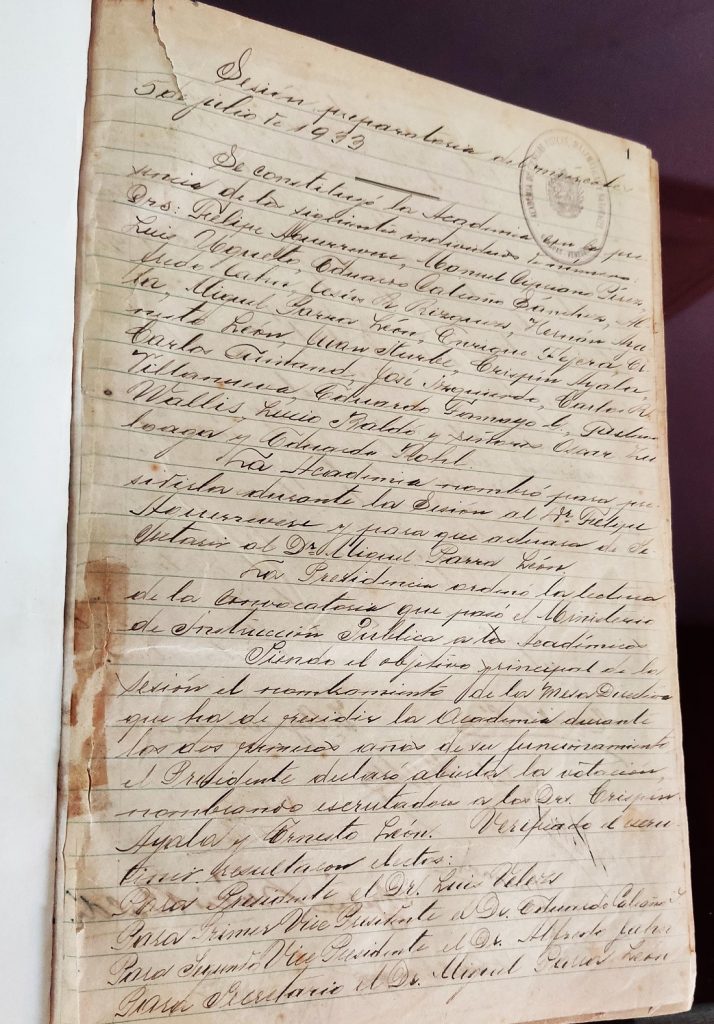 Sesión preparatoria del miercoles
5 de julio de 1933
1
Se constituyó la Academia con la pre-
sencia de los siguientes individuos
Drs: Felipe Aguerrevere, Manuel Cipriano Pérez,
Luis Ugueto, Eduardo Calcaño Sánchez, Al-
fredo Jahn, Jesús R. Rísquez, Hernán
Miguel Parra León, Enrique Tejera, Er-
nesto León, Juan Iturbe, Crispín Ayala,
Carlos José Izquierdo, Carlos R.
Villanueva, Eduardo Tamayo G., Gustavo
Wallis, Lucio Baldó y señores Oscar Zu-
loaga y Eduardo Röhl.
La Academia nombró para pre-
sidirla durante la Sesión al Dr. Felipe
Aguerrevere y para que actuara de Se-
cretario al Dr. Miguel Parra León
La Presidencia ordenó la lectura
de la convocatoria que pasó el Ministerio
de Instrucción Pública a los Académicos
Siendo el objetivo principal de la
sesión el nombramiento de la Mesa Directiva
que ha de presidir la Academia durante
los dos primeros años de su funcionamiento,
el Presidente declaró abierta la votación,
nombrando escrutadores a los Drs. Crispín
Ayala y Ernesto León. Verificado el escru-
tinio resultaron electos:
Para Presidente el Dr. Luis
Para Primer Vice Presidente el Dr. Eduardo Calcaño S.
Para Segundo Vice Presidente el Dr. Alfredo Jahn
Para Secretario el Dr. Miguel Parra León